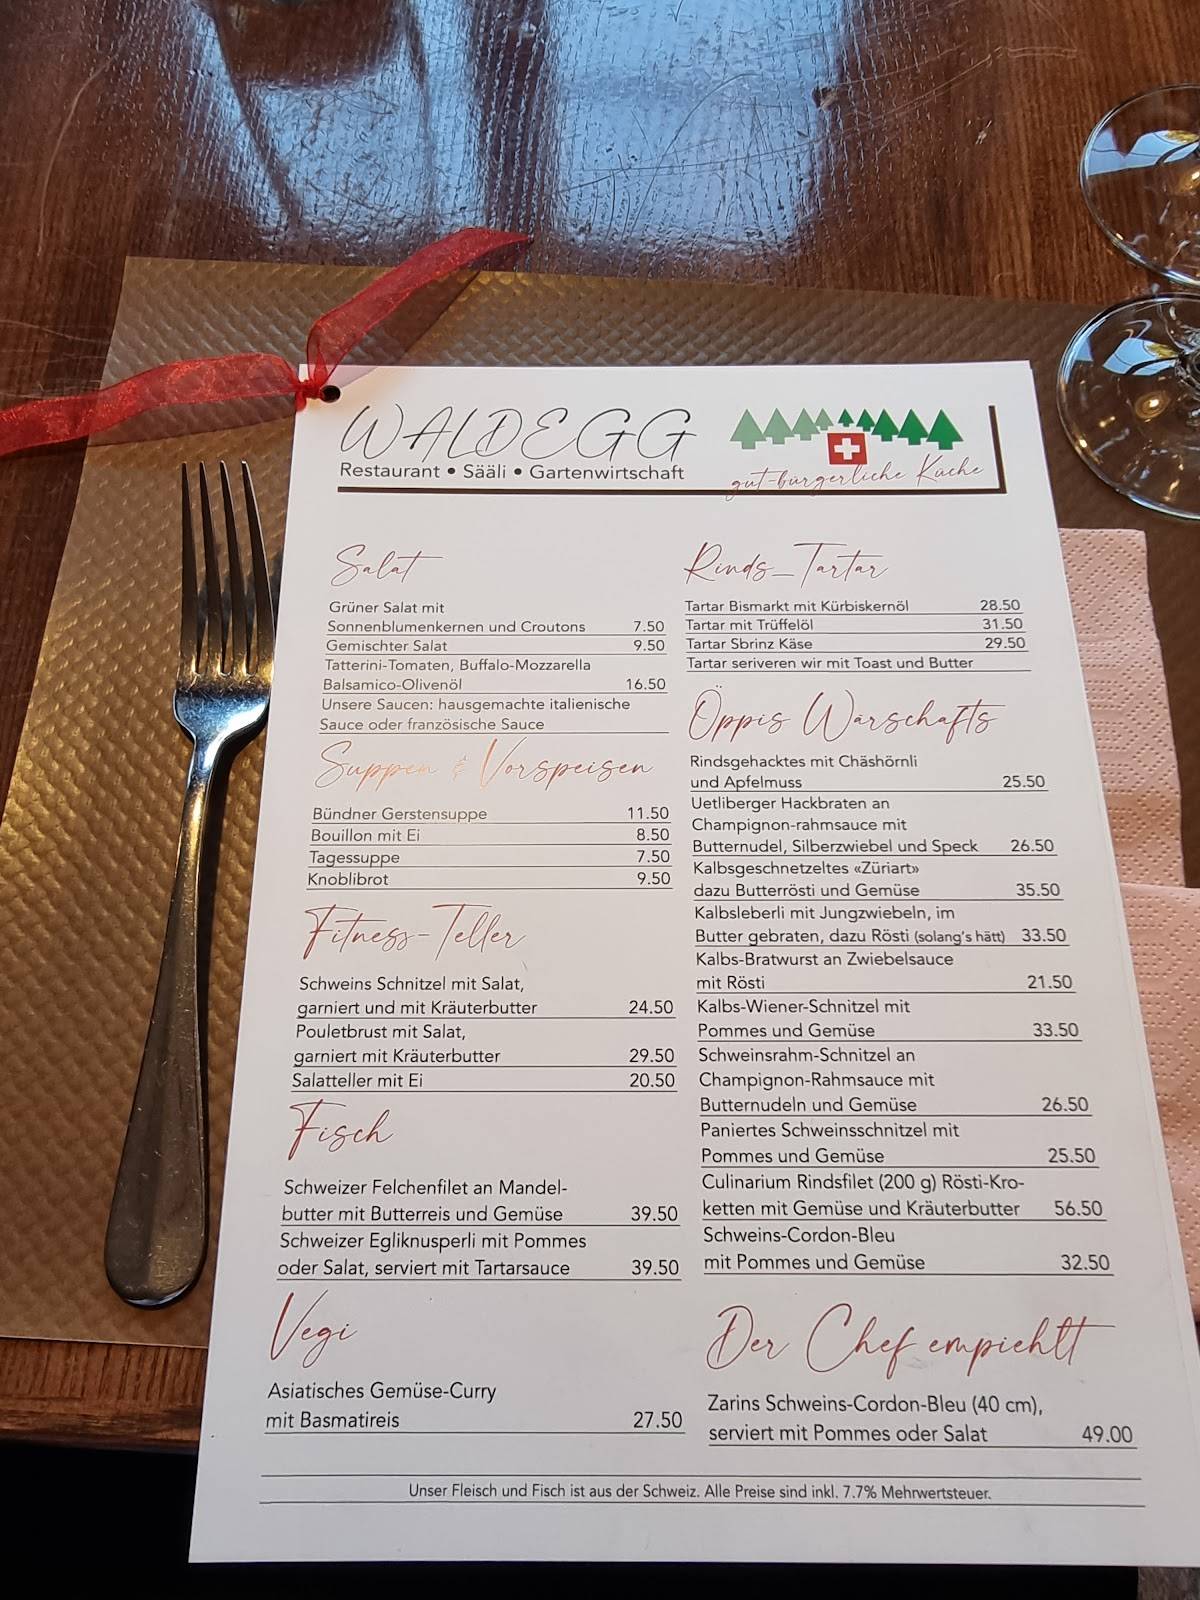 WALDEGG
Restaurant • Sääli • Gartenwirtschaft
gut-bürgerliche Küche
Salat
Grüner Salat mit
Sonnenblumenkernen und Croutons 7.50
Gemischter Salat 9.50
Tatterini-Tomaten, Buffalo-Mozzarella
Balsamico-Olivenöl 16.50
Unsere Saucen: hausgemachte italienische
Sauce oder französische Sauce
Suppen & Vorspeisen
Bündner Gerstensuppe 11.50
Bouillon mit Ei 8.50
Tagessuppe 7.50
Knoblibrot 9.50
Fitness-Teller
Schweins Schnitzel mit Salat,
garniert und mit Kräuterbutter 24.50
Pouletbrust mit Salat,
garniert mit Kräuterbutter 29.50
Salatteller mit Ei 20.50
Fisch
Schweizer Felchenfilet an Mandel-
butter mit Butterreis und Gemüse 39.50
Schweizer Egliknusperli mit Pommes
oder Salat, serviert mit Tartarsauce 39.50
Vegi
Asiatisches Gemüse-Curry
mit Basmatireis 27.50
Rinds_Tartar
Tartar Bismarkt mit Kürbiskernöl 28.50
Tartar mit Trüffelöl 31.50
Tartar Sbrinz Käse 29.50
Tartar seriveren wir mit Toast und Butter
Öppis Warschafts
Rindsgehacktes mit Chäshörnli
und Apfelmuss 25.50
Uetliberger Hackbraten an
Champignon-rahmsauce mit
Butternudel, Silberzwiebel und Speck 26.50
Kalbsgeschnetzeltes «Züriart»
dazu Butterrösti und Gemüse 35.50
Kalbsleberli mit Jungzwiebeln, im
Butter gebraten, dazu Rösti (solang's hätt) 33.50
Kalbs-Bratwurst an Zwiebelsauce
mit Rösti 21.50
Kalbs-Wiener-Schnitzel mit
Pommes und Gemüse 33.50
Schweinsrahm-Schnitzel an
Champignon-Rahmsauce mit
Butternudeln und Gemüse 26.50
Paniertes Schweinsschnitzel mit
Pommes und Gemüse 25.50
Culinarium Rindsfilet (200 g) Rösti-Kro-
ketten mit Gemüse und Kräuterbutter 56.50
Schweins-Cordon-Bleu
mit Pommes und Gemüse 32.50
Der Chef empiehlt
Zarins Schweins-Cordon-Bleu (40 cm),
serviert mit Pommes oder Salat 49.00
Unser Fleisch und Fisch ist aus der Schweiz. Alle Preise sind inkl. 7.7% Mehrwertsteuer.